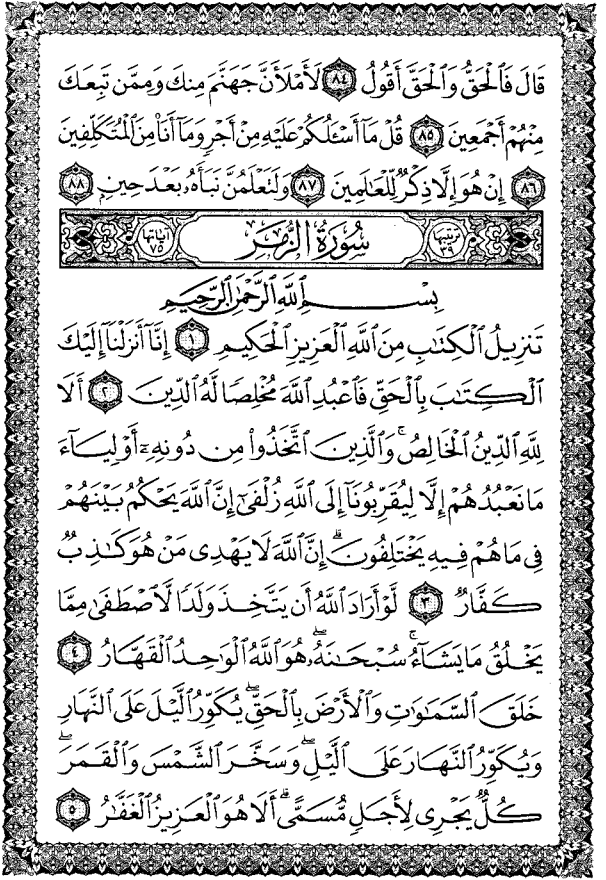 قَالَ فَٱلْحَقُّ وَٱلْحَقَّ أَقُولُ ٨٤ لَأَمْلَأَنَّ جَهَنَّمَ مِنكَ وَمِمَّن تَبِعَكَ
مِنْهُمْ أَجْمَعِينَ ٨٥ قُلْ مَآ أَسْـَٔلُكُمْ عَلَيْهِ مِنْ أَجْرٍ وَمَآ أَنَا۠ مِنَ ٱلْمُتَكَلِّفِينَ
٨٦ إِنْ هُوَ إِلَّا ذِكْرٌ لِّلْعَٰلَمِينَ ٨٧ وَلَتَعْلَمُنَّ نَبَأَهُۥ بَعْدَ حِينٍۭ ٨٨
ترتيبها ٣٩ سُورَةُ الزُّمَرِ آياتها ٧٥
بِسْمِ ٱللَّهِ ٱلرَّحْمَٰنِ ٱلرَّحِيمِ
تَنزِيلُ ٱلْكِتَٰبِ مِنَ ٱللَّهِ ٱلْعَزِيزِ ٱلْحَكِيمِ ١ إِنَّآ أَنزَلْنَآ إِلَيْكَ
ٱلْكِتَٰبَ بِٱلْحَقِّ فَٱعْبُدِ ٱللَّهَ مُخْلِصًا لَّهُ ٱلدِّينَ ٢ أَلَا
لِلَّهِ ٱلدِّينُ ٱلْخَالِصُ ۚ وَٱلَّذِينَ ٱتَّخَذُوا۟ مِن دُونِهِۦٓ أَوْلِيَآءَ
مَا نَعْبُدُهُمْ إِلَّا لِيُقَرِّبُونَآ إِلَى ٱللَّهِ زُلْفَىٰٓ إِنَّ ٱللَّهَ يَحْكُمُ بَيْنَهُمْ
فِى مَا هُمْ فِيهِ يَخْتَلِفُونَ ۗ إِنَّ ٱللَّهَ لَا يَهْدِى مَنْ هُوَ كَٰذِبٌ
كَفَّارٌ ٣ لَّوْ أَرَادَ ٱللَّهُ أَن يَتَّخِذَ وَلَدًا لَّٱصْطَفَىٰ مِمَّا
يَخْلُقُ مَا يَشَآءُ ۚ سُبْحَٰنَهُۥ ۖ هُوَ ٱللَّهُ ٱلْوَٰحِدُ ٱلْقَهَّارُ ٤
خَلَقَ ٱلسَّمَٰوَٰتِ وَٱلْأَرْضَ بِٱلْحَقِّ ۖ يُكَوِّرُ ٱلَّيْلَ عَلَى ٱلنَّهَارِ
وَيُكَوِّرُ ٱلنَّهَارَ عَلَى ٱلَّيْلِ ۖ وَسَخَّرَ ٱلشَّمْسَ وَٱلْقَمَرَ ۖ
كُلٌّ يَجْرِى لِأَجَلٍ مُّسَمًّى ۗ أَلَا هُوَ ٱلْعَزِيزُ ٱلْغَفَّٰرُ ٥